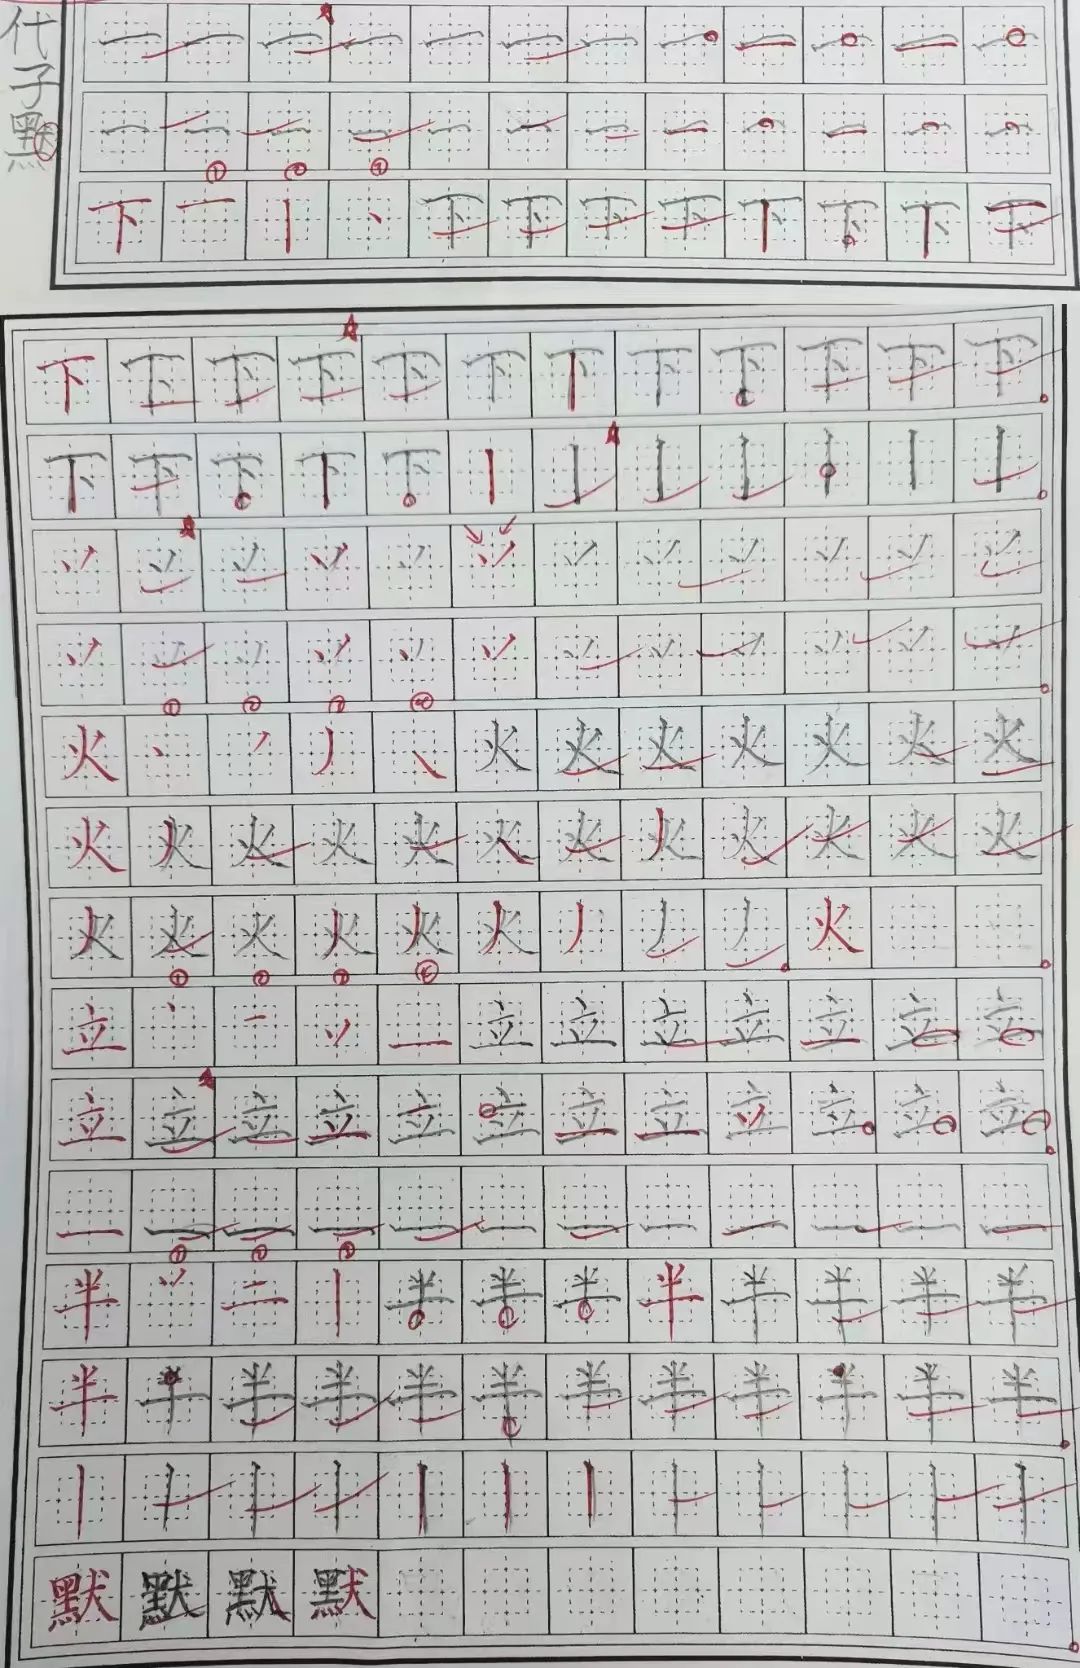 代子默
一 一 一 一 一 一 一 一 一 一 一 一
一 一 一 一 一 一 一 一 一 一 一 一
① ② ③
下 一 丨 丶 下 下 下 下 下 下 下 下
下 下 下 下 下 下 下 下 下 下 下 下
下 下 下 下 下 丨 丨 丨 丨 丨 丨 丨
丷 丷 丷 丷 丷 丷 丷 丷 丷 丷 丷 丷
丷 丷 丷 丷 丷 丷 丷 丷 丷 丷 丷 丷
① ② ③ ④
火 丶 丿 丿 ㇏ 火 火 火 火 火 火 火
火 火 火 火 火 火 火 火 火 火 火 火
火 火 火 火 火 火 丿 丿 丿 火
① ② ③ ④
立 丶 一 丷 一 立 立 立 立 立 立 立
立 立 立 立 立 立 立 立 立 立 立 立
一 一 一 一 一 一 一 一 一 一 一 一
① ② ③
半 丷 二 丨 半 半 半 半 半 半 半 半
半 半 半 半 半 半 半 半 半 半 半 半
丨 丨 丨 丨 丨 丨 丨 丨 丨 丨 丨 丨
默 默 默 默